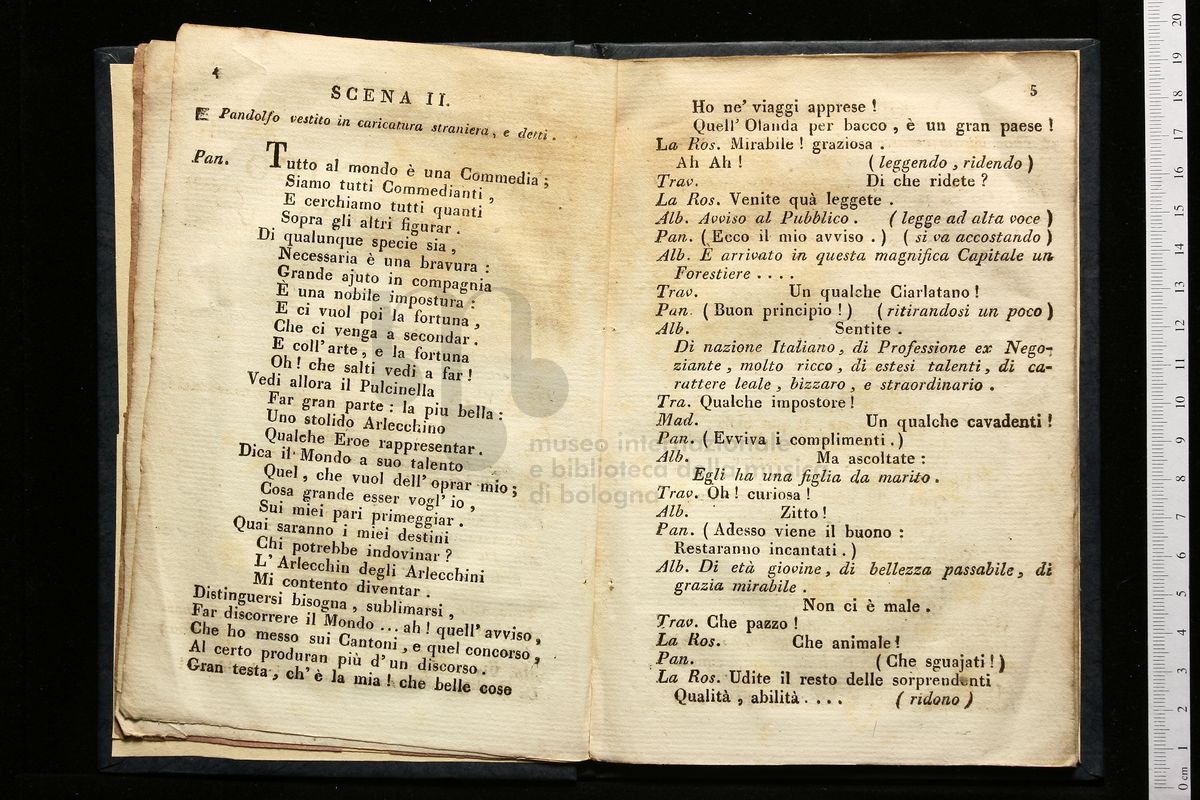 4
SCENA II.
Pandolfo vestito in caricatura straniera, e detti.
Pan. Tutto al mondo è una Commedia;
Siamo tutti Commedianti,
E cerchiamo tutti quanti
Sopra gli altri figurar.
Di qualunque specie sia,
Necessaria è una bravura:
Grande ajuto in compagnia
È una nobile impostura:
E ci vuol poi la fortuna,
Che ci venga a secondar.
E coll'arte, e la fortuna
Oh! che salti vedi a far!
Vedi allora il Pulcinella
Far gran parte: la piu bella:
Uno stolido Arlecchino
Qualche Eroe rappresentar.
Dica il Mondo a suo talento
Quel, che vuol dell'oprar mio;
Cosa grande esser vogl'io,
Sui miei pari primeggiar.
Quai saranno i miei destini
Chi potrebbe indovinar?
L'Arlecchin degli Arlecchini
Mi contento diventar.
Distinguersi bisogna, sublimarsi,
Far discorrere il Mondo ... ah! quell'avviso,
Che ho messo sui Cantoni, e quel concorso,
Al certo produran più d'un discorso.
Gran testa, ch'è la mia! che belle cose
5
Ho ne' viaggi apprese!
Quell' Olanda per bacco, è un gran paese!
La Ros. Mirabile! graziosa.
Ah Ah! (leggendo, ridendo)
Trav. Di che ridete?
La Ros. Venite quà leggete.
Alb. Avviso al Pubblico. (legge ad alta voce)
Pan. (Ecco il mio avviso.) (si va accostando)
Alb. È arrivato in questa magnifica Capitale un
Forestiere ....
Trav. Un qualche Ciarlatano!
Pan. (Buon principio!) (ritirandosi un poco)
Alb. Sentite.
Di nazione Italiano, di Professione ex Nego-
ziante, molto ricco, di estesi talenti, di ca-
rattere leale, bizzaro, e straordinario.
Tra. Qualche impostore!
Mad. Un qualche cavadenti!
Pan. (Evviva i complimenti.)
Alb. Ma ascoltate:
Egli ha una figlia da marito.
Trav. Oh! curiosa!
Alb. Zitto!
Pan. (Adesso viene il buono:
Restaranno incantati.)
Alb. Di età giovine, di bellezza passabile, di
grazia mirabile.
Non ci è male.
Trav. Che pazzo!
La Ros. Che animale!
Pan. (Che sguajati!)
La Ros. Udite il resto delle sorprendenti
Qualità, abilità.... (ridono)
museo internazionale
e biblioteca della musica
di bologna
0 cm 1 2 3 4 5 6 7 8 9 10 11 12 13 14 15 16 17 18 19 20